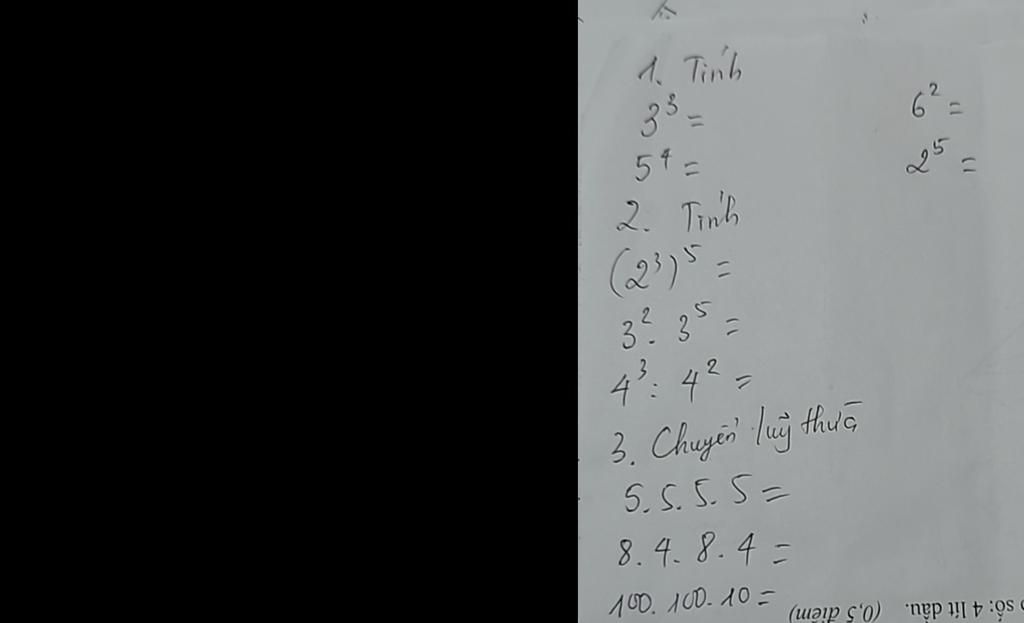 1. Tính
3³ = 6² =
5⁴ = 2⁵ =
2. Tính
(2³)⁵ =
3² . 3⁵ =
4³ : 4² =
3. Chuyển luỹ thừa
5. 5. 5. 5 =
8. 4. 8. 4 =
100. 100. 10 =
số: 4 lít dầu. (0,5 điểm)